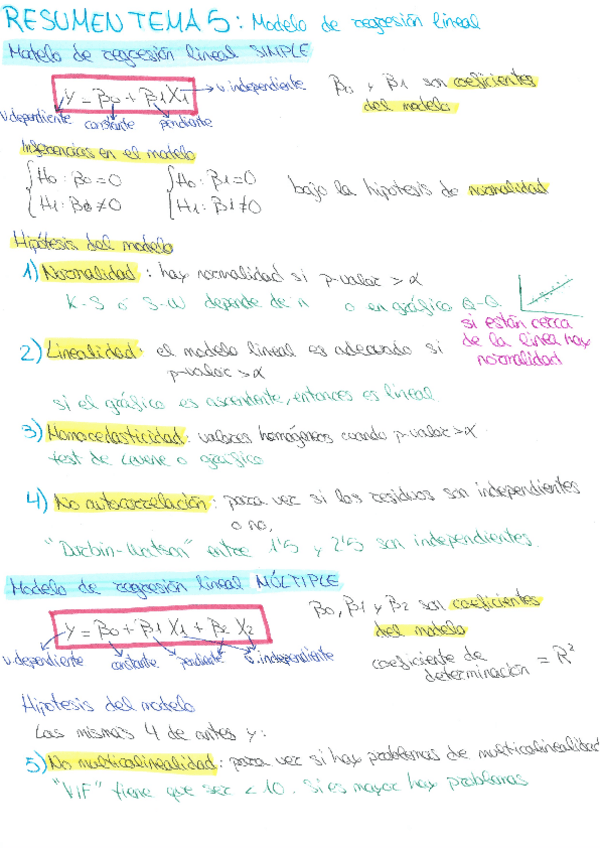 RESUMEN TEMA 5: Modelo de regresión lineal
Modelo de regresión lineal SIMPLE
y = β0 + β1 X1 → v. independiente
β0 y β1 son coeficientes
del modelo
v dependiente constante pendiente
Inferencias en el modelo
{H0: β0 = 0 {H0: β1 = 0
{H1: β0 ≠ 0 {H1: β1 ≠ 0
bajo la hipotesis de normalidad
Hipótesis del modelo
1) Normalidad: hay normalidad si p-valor > α
K-S ó S-W depende de n o en gráfico Q-Q
si están cerca
de la linea hay
normalidad
2) Linealidad: el modelo lineal es adecuado si
p-valor > α
si el gráfico es ascendente, entonces es lineal
3) Homocedasticidad: valores homogéneos cuando p-valor > α
test de Levene o gráfico
4) No autocorrelación: para ver si los residuos son independientes
o no,
"Durbin-Watson" entre 1'5 y 2'5 son independientes.
Modelo de regresión lineal MÚLTIPLE
y = β0 + β1 X1 + β2 X2
β0, β1 y β2 son coeficientes
del modelo
v. dependiente constante pendiente v. independiente
coeficiente de
determinación = R²
Hipotesis del modelo
Las mismas 4 de antes y:
5) No multicolinealidad: para ver si hay problemas de multicolinealidad
"VIF" tiene que ser < 10. Si es mayor hay problemas